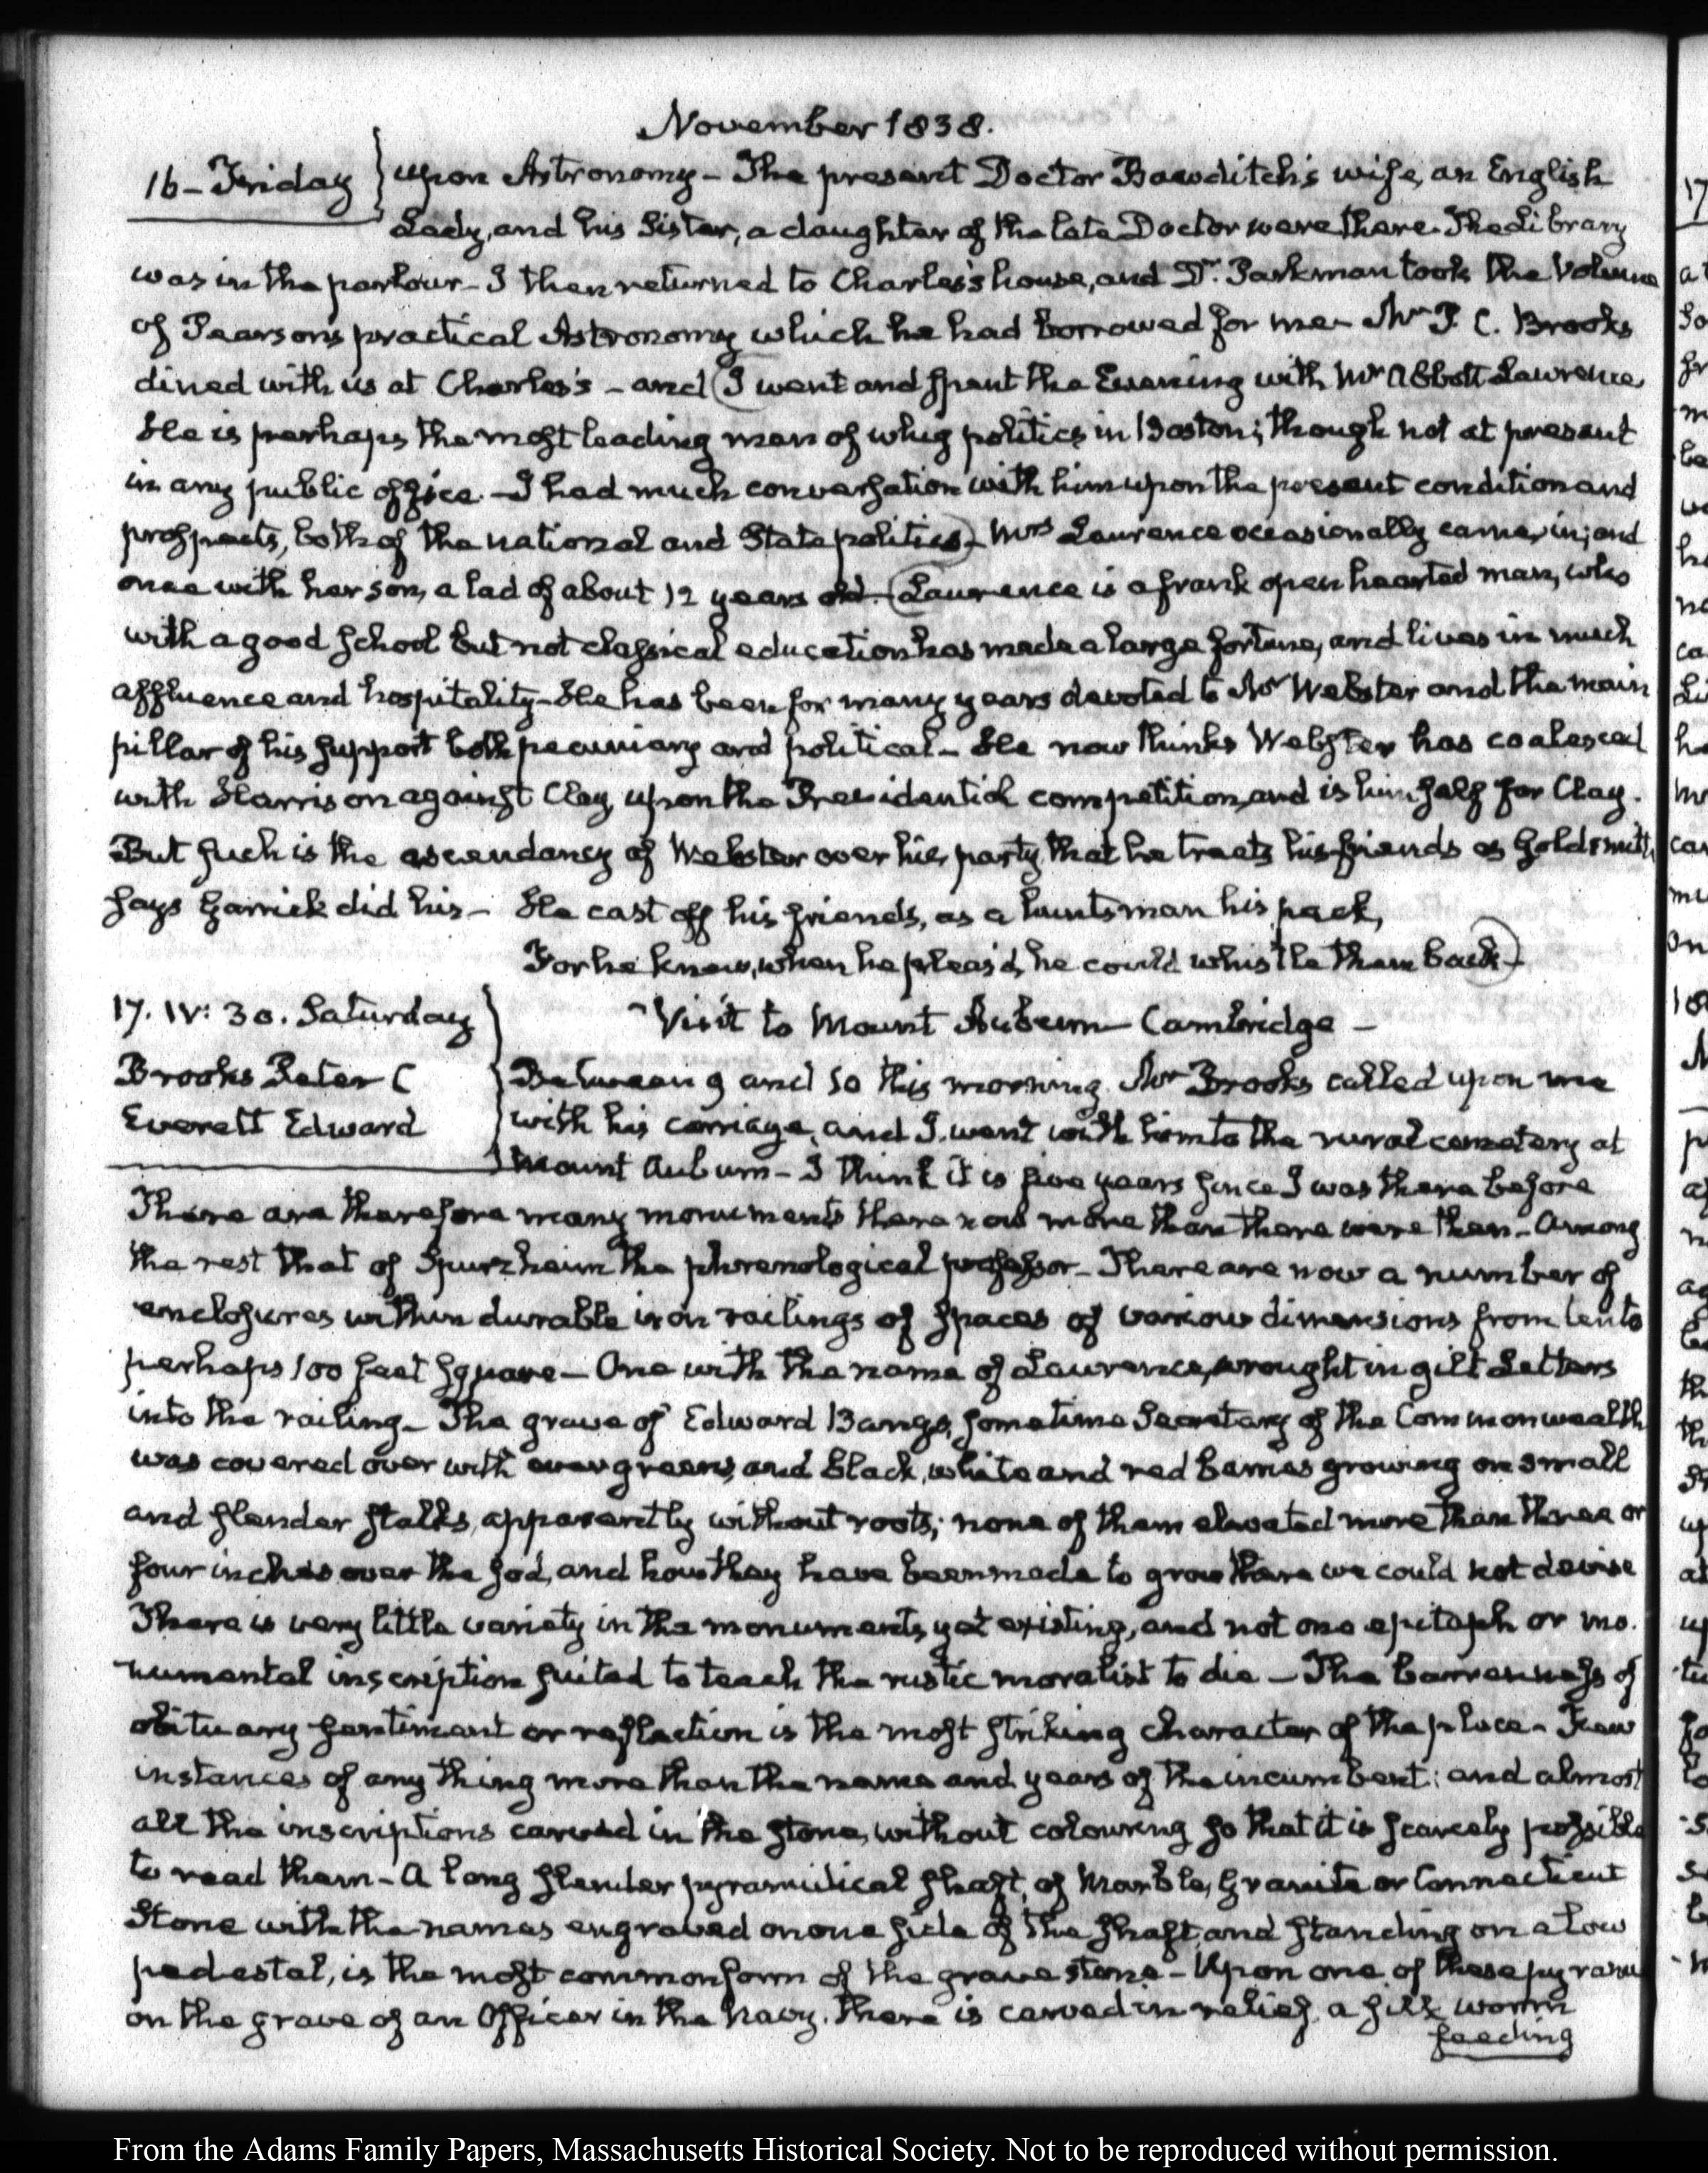 November 1838.
16 – Friday } upon Astronomy – The present Doctor Bowditch's wife, an English
Lady, and his Sister, a daughter of the late Doctor were there. The Library
was in the parlour – I then returned to Charles's house, and Dr. Parkman took the Volume
of Pearson's practical Astronomy which he had borrowed for me – Mr P. C. Brooks
dined with us at Charles's – and (I went and spent the Evening with Mr Abbott Lawrence
He is perhaps the most leading man of whig politics in Boston; though not at present
in any public office. – I had much conversation with him upon the present condition and
prospects, both of the national and State politics) – Mrs Lawrence occasionally came in; and
once with her son, a lad of about 12 years old. (Lawrence is a frank open hearted man, who
with a good school but not classical education has made a large fortune, and lives in much
affluence and hospitality – He has been for many years devoted to Mr Webster and the main
pillar of his support both pecuniary and political – He now thinks Webster has coalesced
with Harrison against Clay, upon the Presidential competition, and is himself for Clay.
But such is the ascendancy of Webster over his party, that he treats his friends as Goldsmith
says Garrick did his – He cast off his friends, as a huntsman his pack,
For he knew, when he pleas'd, he could whistle them back) –
17. IV: 30. Saturday } Visit to Mount Auburn – Cambridge –
Brooks Peter C } Between 9 and 10 this morning Mr Brooks called upon me
Everett Edward } with his carriage, and I went with him to the rural cemetery at
Mount Auburn – I think it is five years since I was there before
There are therefore many monuments there now more than there were then – Among
the rest that of Spurzheim the phrenological professor – There are now a number of
enclosures within durable iron railings of spaces of various dimensions from ten to
perhaps 100 feet square – One with the name of Lawrence, wrought in gilt Letters
into the railing – The grave of Edward Bangs, sometime Secretary of the Commonwealth
was covered over with evergreens, and black, white and red berries growing on small
and slender stalks, apparently without roots; none of them elevated more than three or
four inches over the sod, and how they have been made to grow there we could not devise
There is very little variety in the monuments yet existing, and not one epitaph or mo-
numental inscription suited to teach the rustic moralist to die – The barrenness of
obituary sentiment or reflection is the most striking character of the place – Few
instances of any thing more than the name and years of the incumbent: and almost
all the inscriptions carved in the stone, without colouring so that it is scarcely possible
to read them – A long slender pyramidical shaft, of Marble, Granite or Connecticut
Stone with the names engraved on one side of the shaft, and standing on a low
pedestal, is the most common form of the grave stone – Upon one of these pyrami
on the grave of an Officer in the Navy. there is carved in relief a silk worm
feeding
From the Adams Family Papers, Massachusetts Historical Society. Not to be reproduced without permission.